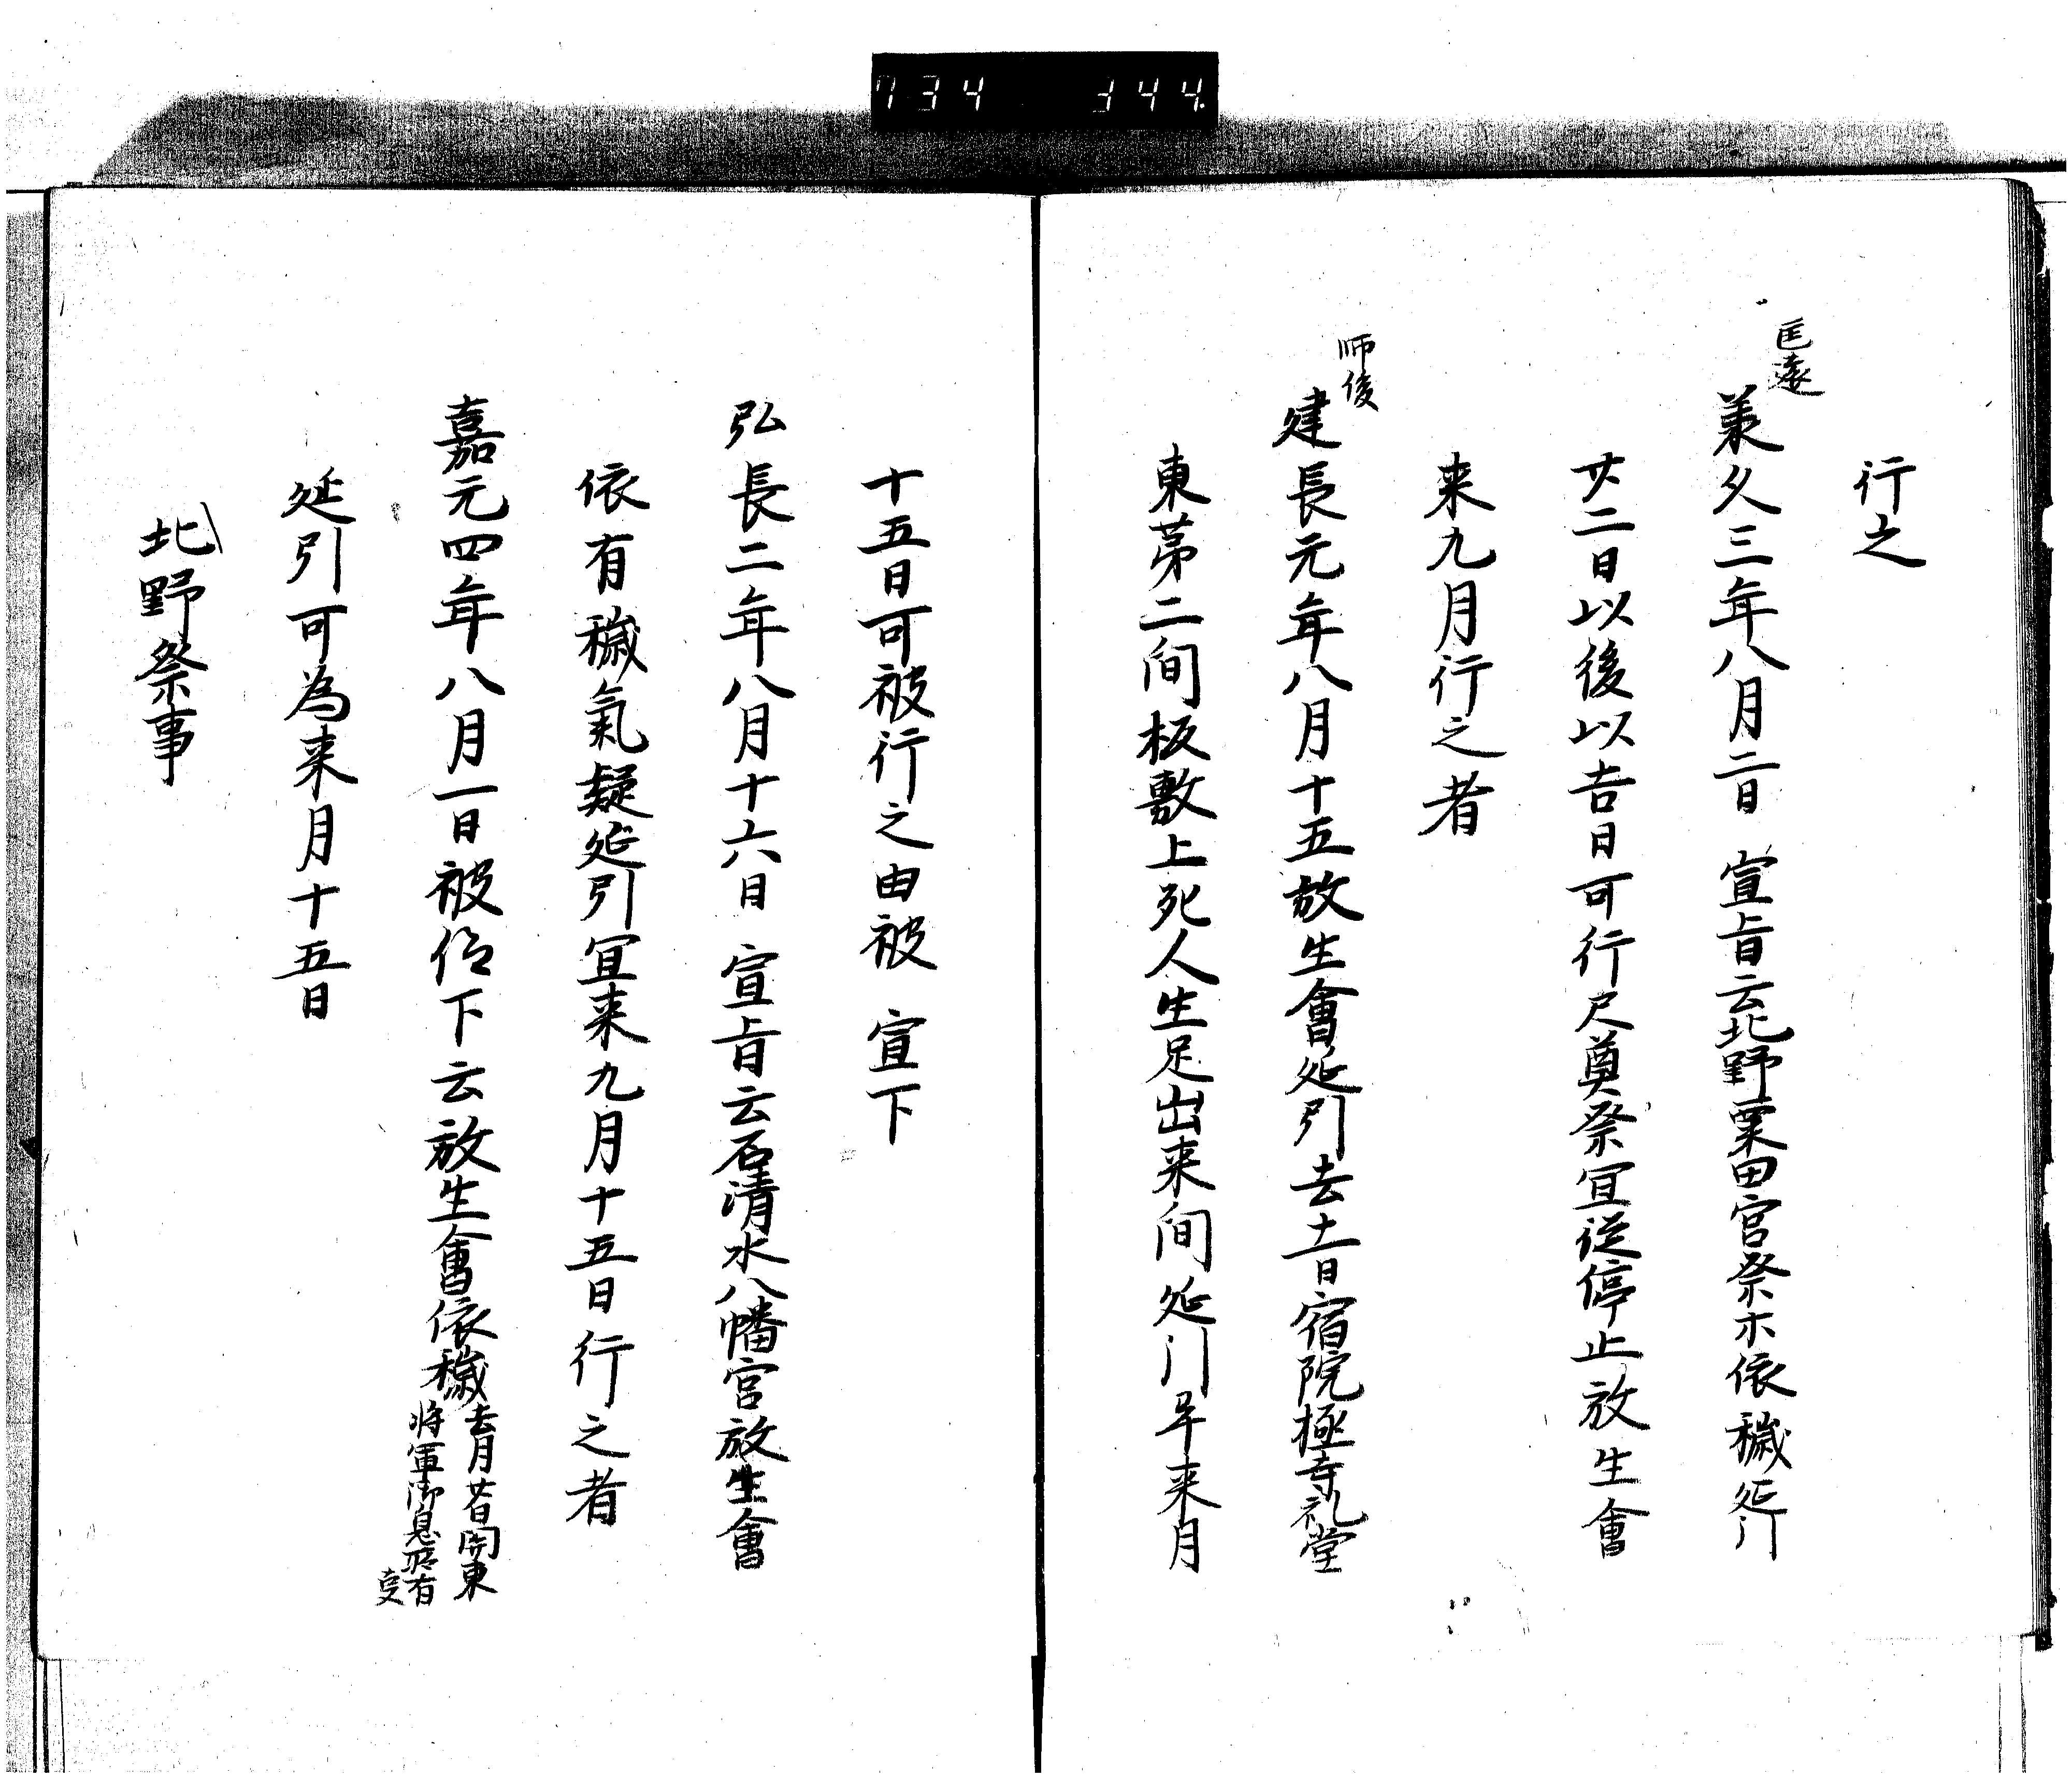 734 344
行之
匡遠
兼久三年八月二日 宣旨云北野粟田宮祭木依穢延引
廿二日以後以吉日可行尺奠祭宜従停止放生會
来九月行之者
師俊
建長元年八月十五放生會延引去十一日宿院極寺礼堂
東苐二间板敷上死人生足出来间延引早来月
十五日可被行之由被 宣下
弘長二年八月十六日 宣旨云石清水八幡宮放生會
依有穢氣疑延引宜来九月十五日行之者
嘉元四年八月一日被仰下云放生會依穢
去月廿日関東
将軍御息所有
事
延引可為来月十五日
北野祭事